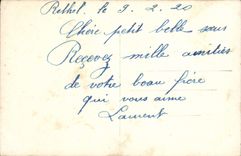 Rethel, le 9. 2. 20
Chère petit belle sœur
Recevez mille amitiés
de votre beau frère
qui vous aime
Laurent